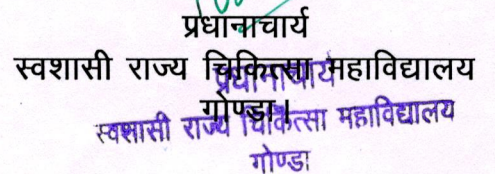 प्रधानाचार्य
स्वशासी राज्य चिकित्सा महाविद्यालय
गोण्डा।
प्रधानाचार्य
स्वशासी राज्य चिकित्सा महाविद्यालय
गोण्डा